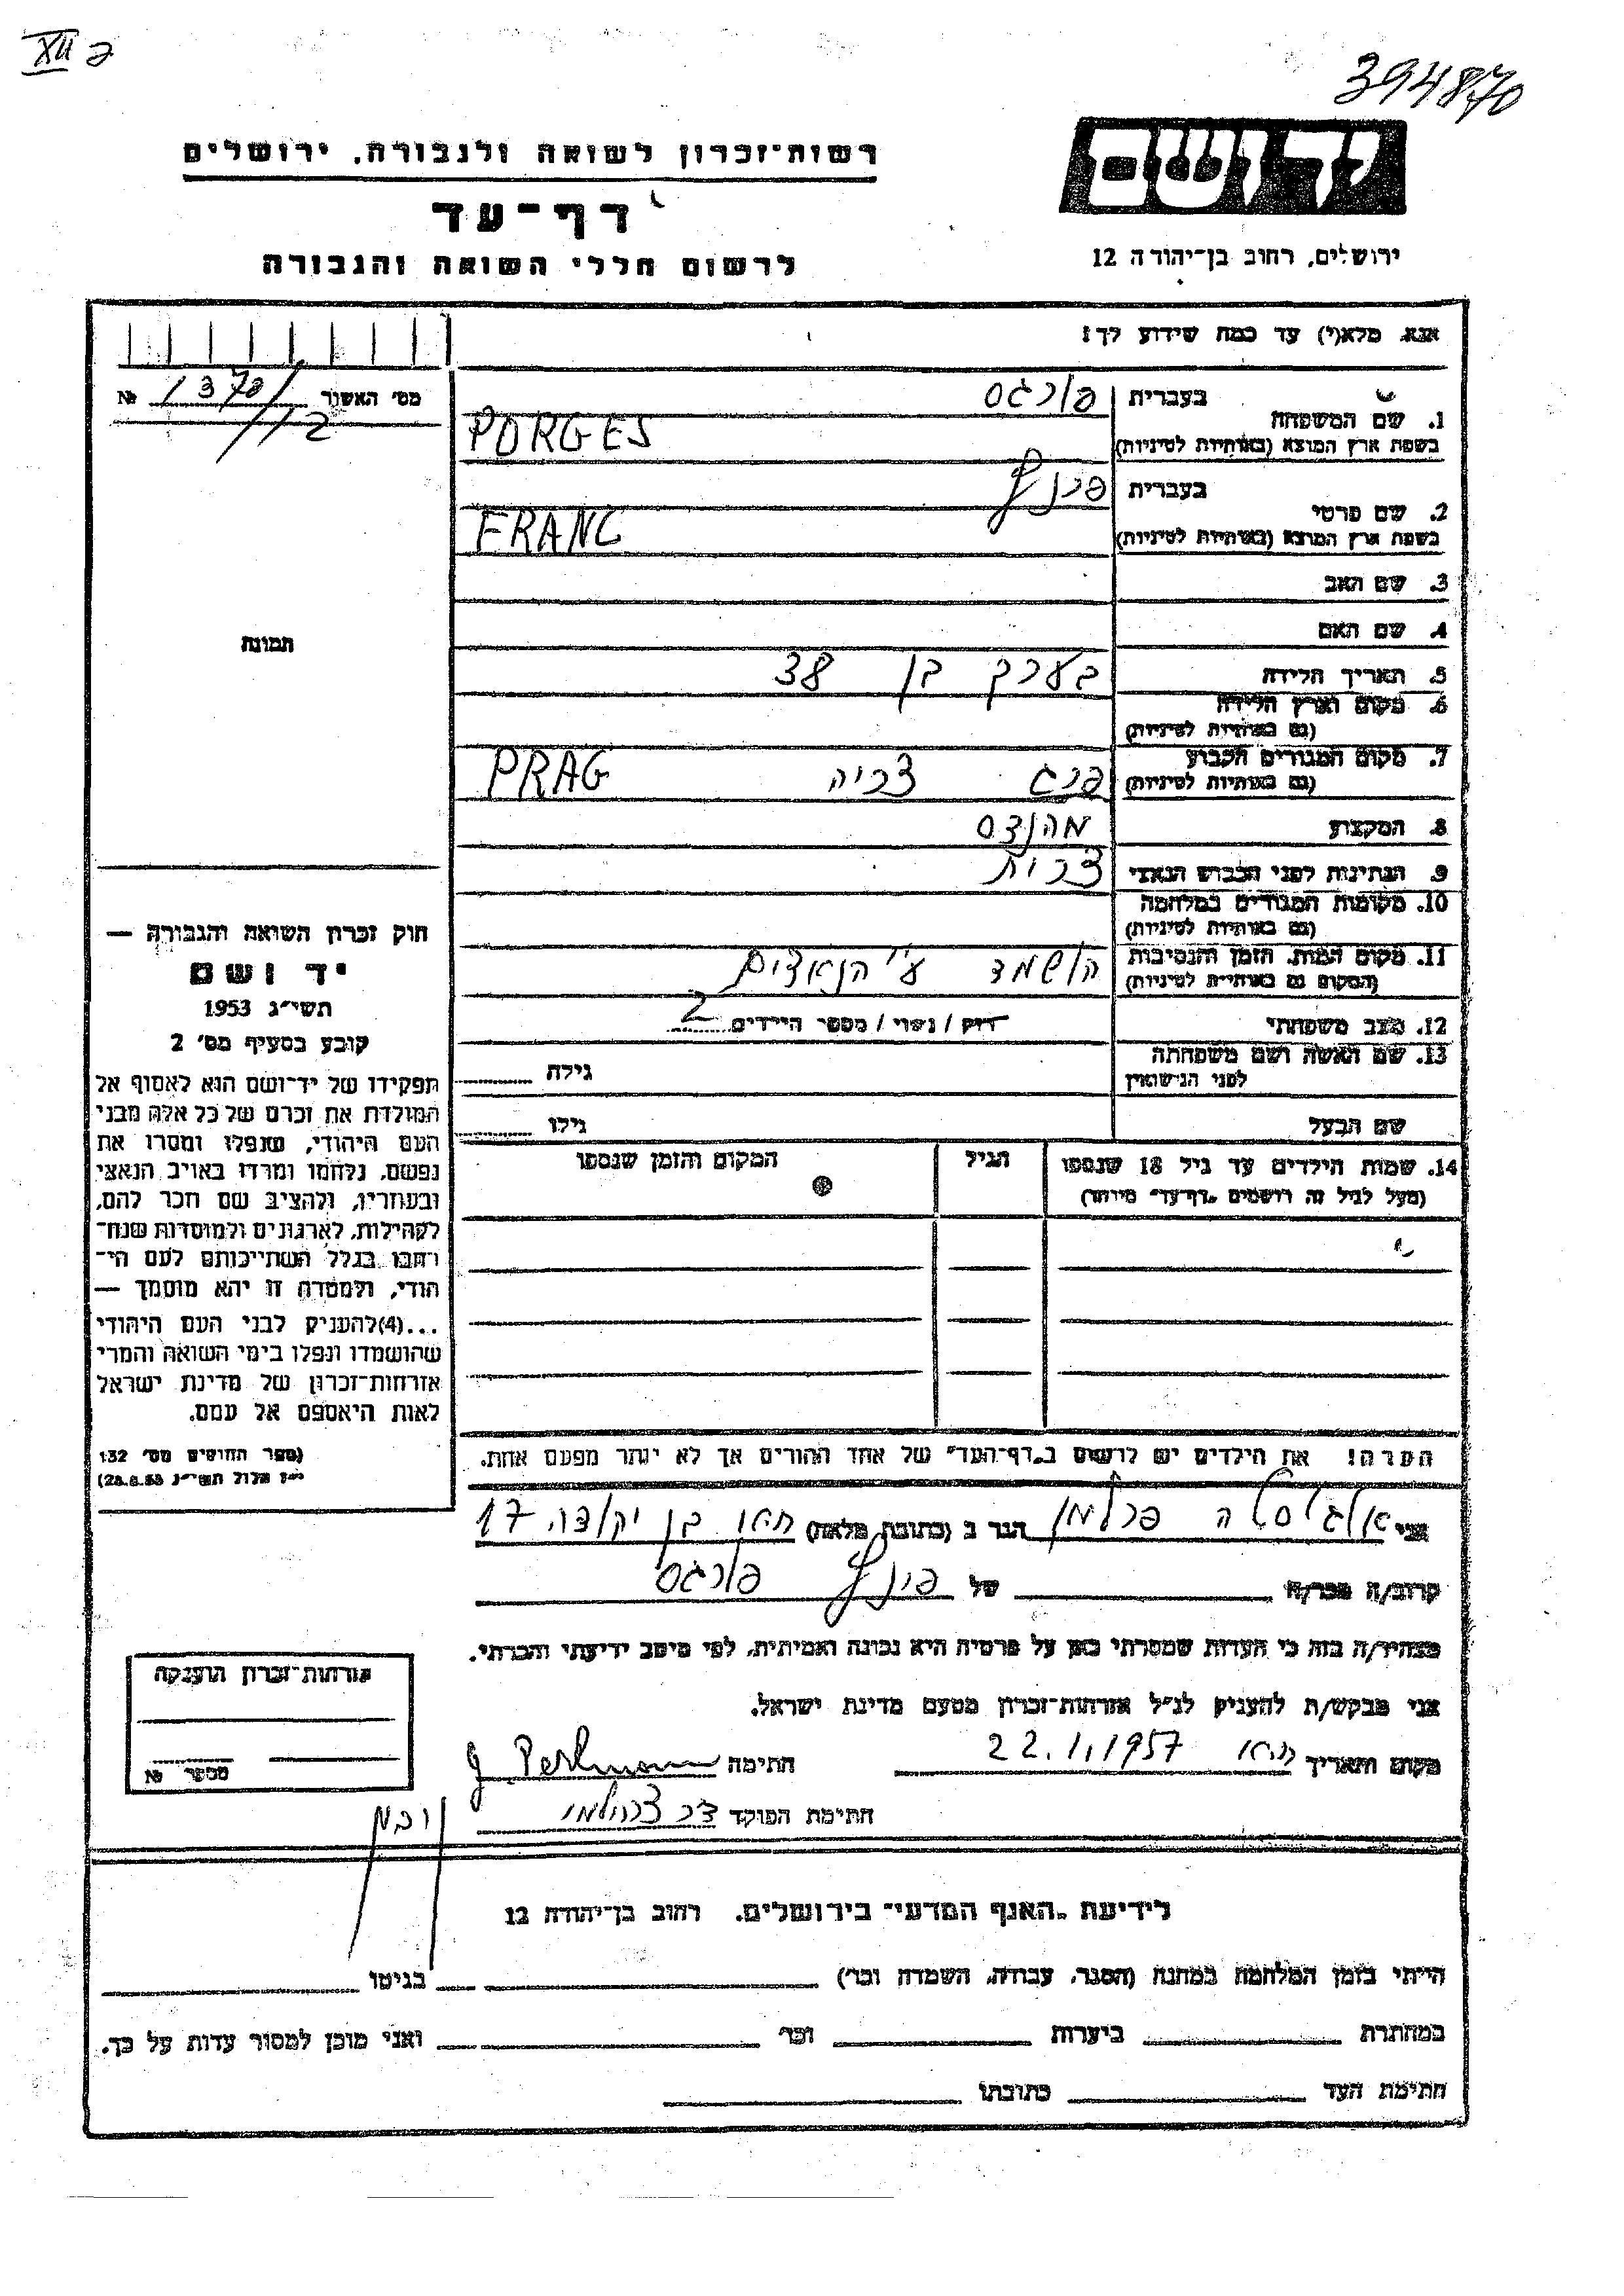 XII
394870
יד ושם
רשות-זכרון לשואה ולגבורה, ירושלים
דף-עד
לרשום חללי השואה והגבורה
ירושלים, רחוב בן-יהודה 12
אנא, מלא(י) עד כמה שידוע לך!
מס' האשור № 1370/112
1. שם המשפחה
בעברית פורגס
בשפת ארץ המוצא (באותיות לטיניות) PORGES
2. שם פרטי
בעברית
בשפת ארץ המוצא (באותיות לטיניות) FRANC
3. שם האב
4. שם האם
תמונה
5. תאריך הלידה בערך בן 38
6. מקום וארץ הלידה
(גם באותיות לטיניות)
7. מקום המגורים הקבוע
(גם באותיות לטיניות) פרג צכיה PRAG
8. המקצוע מהנדס
9. הנתינות לפני הכבוש הנאצי צכית
10. מקומות המגורים במלחמה
(גם באותיות לטיניות)
11. מקום המות, הזמן והנסיבות
(המקום גם באותיות לטיניות) הושמד ע"י הנאצים
12. מצב משפחתי רווק / נשוי / מספר הילדים 2
13. שם האשה ושם משפחתה
לפני הנישואין גילה
שם הבעל גילו
14. שמות הילדים עד גיל 18 שנספו
(מעל לגיל זה רושמים "דף-עד" מיוחד)
הגיל
המקום והזמן שנספו
חוק זכרון השואה והגבורה —
יד ושם
תשי"ג 1953
קובע בסעיף מס' 2
תפקידו של יד-ושם הוא לאסוף אל
המולדת את זכרם של כל אלה מבני
העם היהודי, שנפלו ומסרו את
נפשם, נלחמו ומרדו באויב הנאצי
ובעוזריו, ולהציב שם וזכר להם,
לקהילות, לארגונים ולמוסדות שנח-
רבו בגלל השתייכותם לעם הי-
הודי, ולמטרה זו יהא מוסמך —
...(4)להעניק לבני העם היהודי
שהושמדו ונפלו בימי השואה והמרי
אזרחות-זכרון של מדינת ישראל
לאות היאספם אל עמם.
(ספר החוקים מס' 132
י"ז אלול תשי"ג 28.8.53)
הערה! את הילדים יש לרשום ב"דף-העד" של אחד ההורים אך לא יותר מפעם אחת.
אני פרלמן הגר ב (כתובת מלאה) 17
קרוב/ה מכר/ה של פורגס
מצהיר/ה בזה כי העדות שמסרתי כאן על פרטיה היא נכונה ואמיתית, לפי מיטב ידיעתי והכרתי.
אני מבקש/ת להעניק לנ"ל אזרחות-זכרון מטעם מדינת ישראל.
מקום ותאריך 22.1.1957 חתימה J. Perlmann
חתימת הפוקד
אזרחות-זכרון הוענקה
מספר №
לידיעת "האגף המדעי" בירושלים, רחוב בן-יהודה 12
הייתי בזמן המלחמה במחנה (הסגר, עבודה, השמדה וכו') בגיטו
במחתרת ביערות וכו' ואני מוכן למסור עדות על כך.
חתימת העד כתובתו